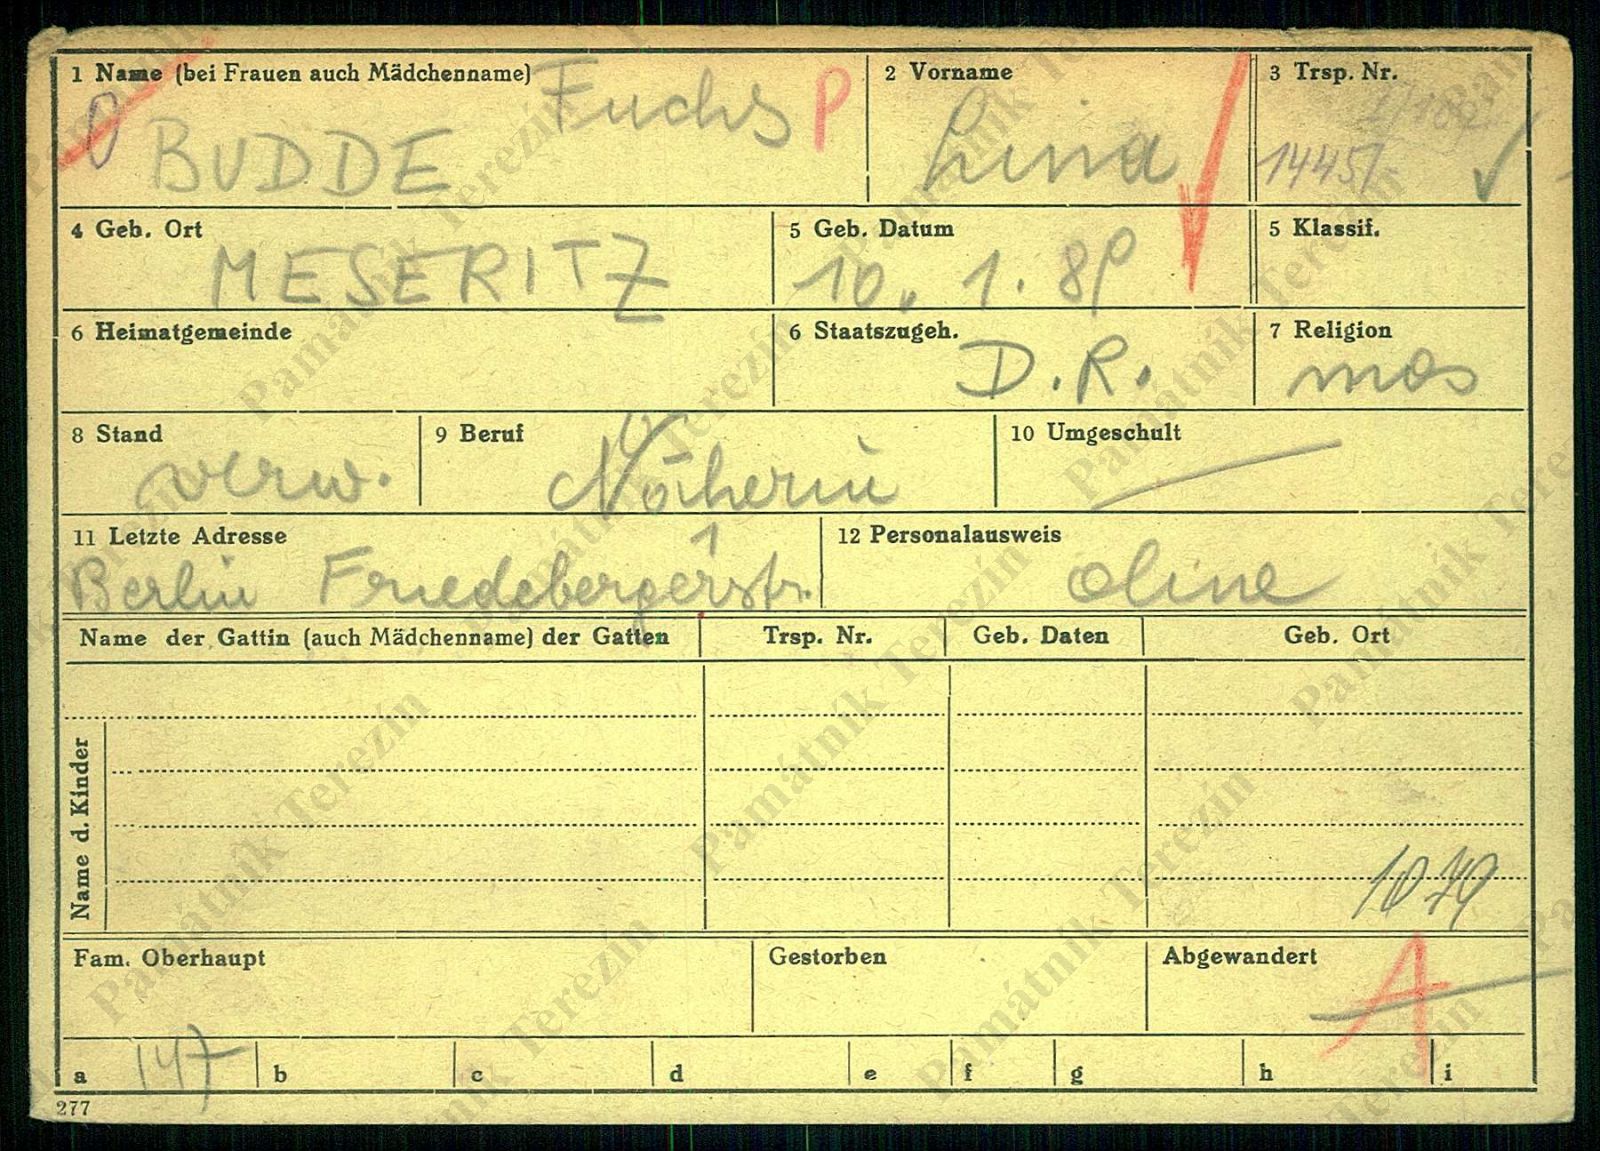 1 Name (bei Frauen auch Mädchenname) Fuchs P
BUDDE
2 Vorname
Lina
3 Trsp. Nr.
14451
4 Geb. Ort
MESERITZ
5 Geb. Datum
10. 1. 89
5 Klassif.
6 Heimatgemeinde
6 Staatszugeh.
D.R.
7 Religion
mos
8 Stand
verw.
9 Beruf
Näherin
10 Umgeschult
11 Letzte Adresse
Berlin Friedebergerstr.
12 Personalausweis
ohne
Name der Gattin (auch Mädchenname) der Gatten
Trsp. Nr.
Geb. Daten
Geb. Ort
Name d. Kinder
1079
Fam. Oberhaupt
Gestorben
Abgewandert
A
a 147 b c d e f g h i
277
Památník Terezín